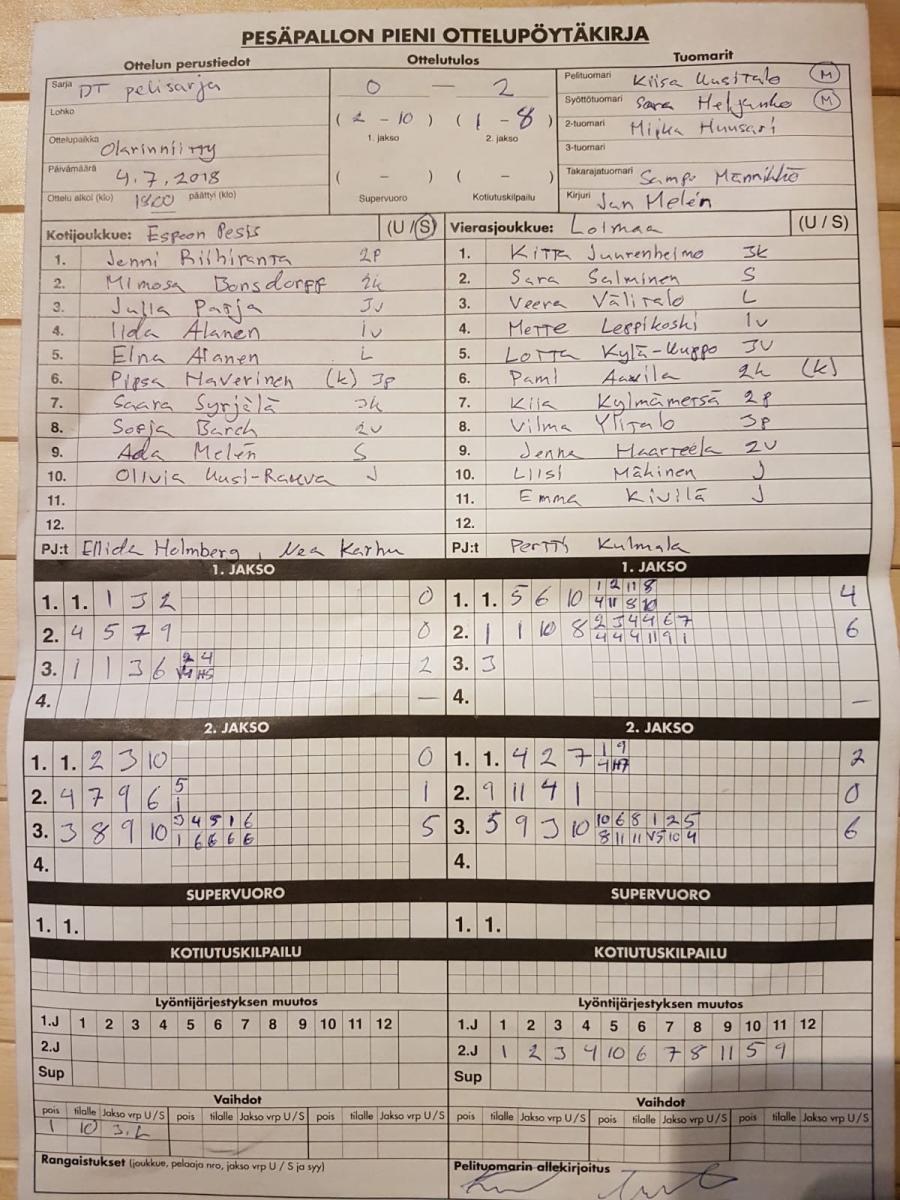 PESÄPALLON PIENI OTTELUPÖYTÄKIRJA
Ottelun perustiedot Ottelutulos Tuomarit
Sarja DT pelisarja
0 — 2
Pelituomari Kiisa Uusitalo M
Lohko
(2 – 10) (1 – 8)
1. jakso 2. jakso
Syöttötuomari Sara Heljanko M
2-tuomari Miika Huusari
Ottelupaikka Olarinniitty
3-tuomari
Päivämäärä 4.7.2018
( – ) ( – )
Supervuoro Kotiutuskilpailu
Takarajatuomari Sampo Männikkö
Ottelu alkoi (klo) 1800 päättyi (klo)
Kirjuri Jan Melén
Kotijoukkue: Espoon Pesis (U / S) Vierasjoukkue: Loimaa (U / S)
1. Jenni Riihiranta 2p 1. Kitta Juurenheimo 3k
2. Mimosa Bonsdorff 2k 2. Sara Salminen S
3. Julia Parja 3v 3. Veera Välitalo L
4. Iida Alanen 1v 4. Mette Leppikoski 1v
5. Elna Alanen L 5. Lotta Kylä-Kuppo 3v
6. Pipsa Haverinen (k) 3p 6. Pami 2k (k)
7. Saara Syrjälä 3k 7. Kiia Kylmämetsä 2p
8. Sofja Barch 2v 8. Vilma Ylitalo 3p
9. Ada Melén S 9. Jenna Haarteela 2v
10. Olivia Uusi-Rauva J 10. Liisi Mähinen J
11. 11. Emma Kivilä J
12. 12.
PJ:t Ellida Holmberg, Nea Karhu PJ:t Pertti Kulmala
1. JAKSO 1. JAKSO
1. 1. 1 3 2 0 1. 1. 5 6 10 1 2 11 8 4
4 11 8 10
2. 4 5 7 9 0 2. 1 1 10 8 2 3 4 4 6 7 6
4 4 4 11 9 1
3. 1 1 3 6 2 4 2 3. 3
V4 H5
4. — 4. —
2. JAKSO 2. JAKSO
1. 1. 2 3 10 0 1. 1. 4 2 7 1 9 2
4 H7
2. 4 7 9 6 5 1 2. 9 11 4 1 0
1
3. 3 8 9 10 3 4 5 1 6 5 3. 5 9 3 10 10 6 8 1 2 5 6
1 6 6 6 6 8 11 11 V5 10 4
4. 4.
SUPERVUORO SUPERVUORO
1. 1. 1. 1.
KOTIUTUSKILPAILU KOTIUTUSKILPAILU
Lyöntijärjestyksen muutos Lyöntijärjestyksen muutos
1.J 1 2 3 4 5 6 7 8 9 10 11 12 1.J 1 2 3 4 5 6 7 8 9 10 11 12
2.J 2.J 1 2 3 4 10 6 7 8 11 5 9
Sup Sup
Vaihdot Vaihdot
pois tilalle Jakso vrp U / S pois tilalle Jakso vrp U / S pois tilalle Jakso vrp U / S pois tilalle Jakso vrp U / S pois tilalle Jakso vrp U / S pois tilalle Jakso vrp U / S
1 10 3.L
Rangaistukset (joukkue, pelaaja nro, jakso vrp U / S ja syy) Pelituomarin allekirjoitus